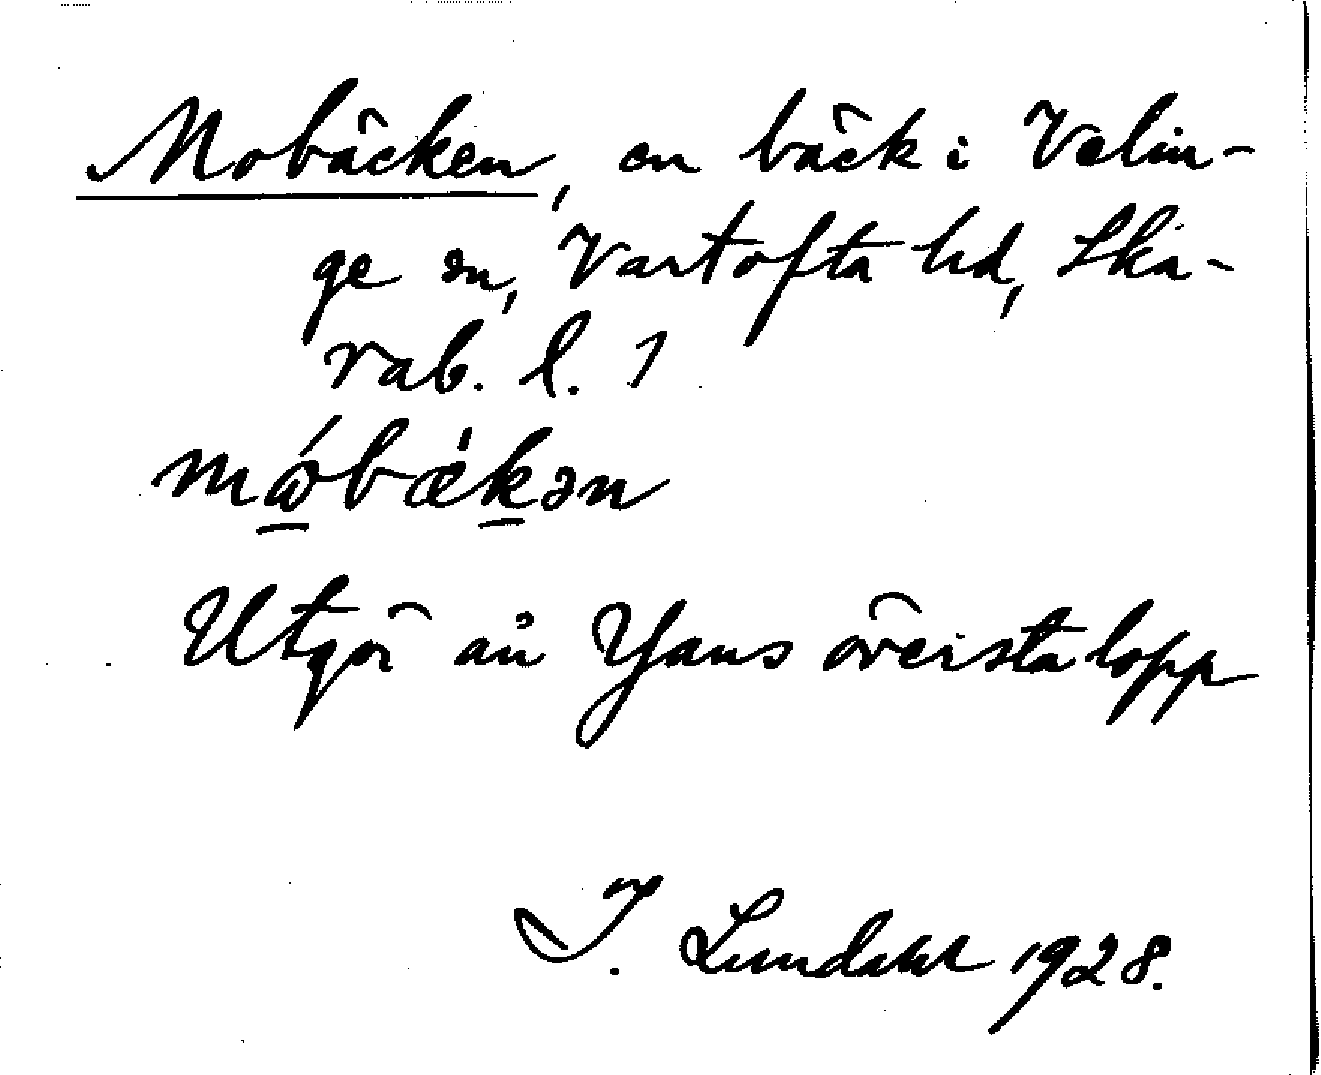 Mobäcken, en bäck i Velin-
ge sn, Vartofta hd, Ska-
rab. l. 1
mꞷ́bæ̀kən
Utgör ån Yans översta lopp
I. Lundahl 1928.